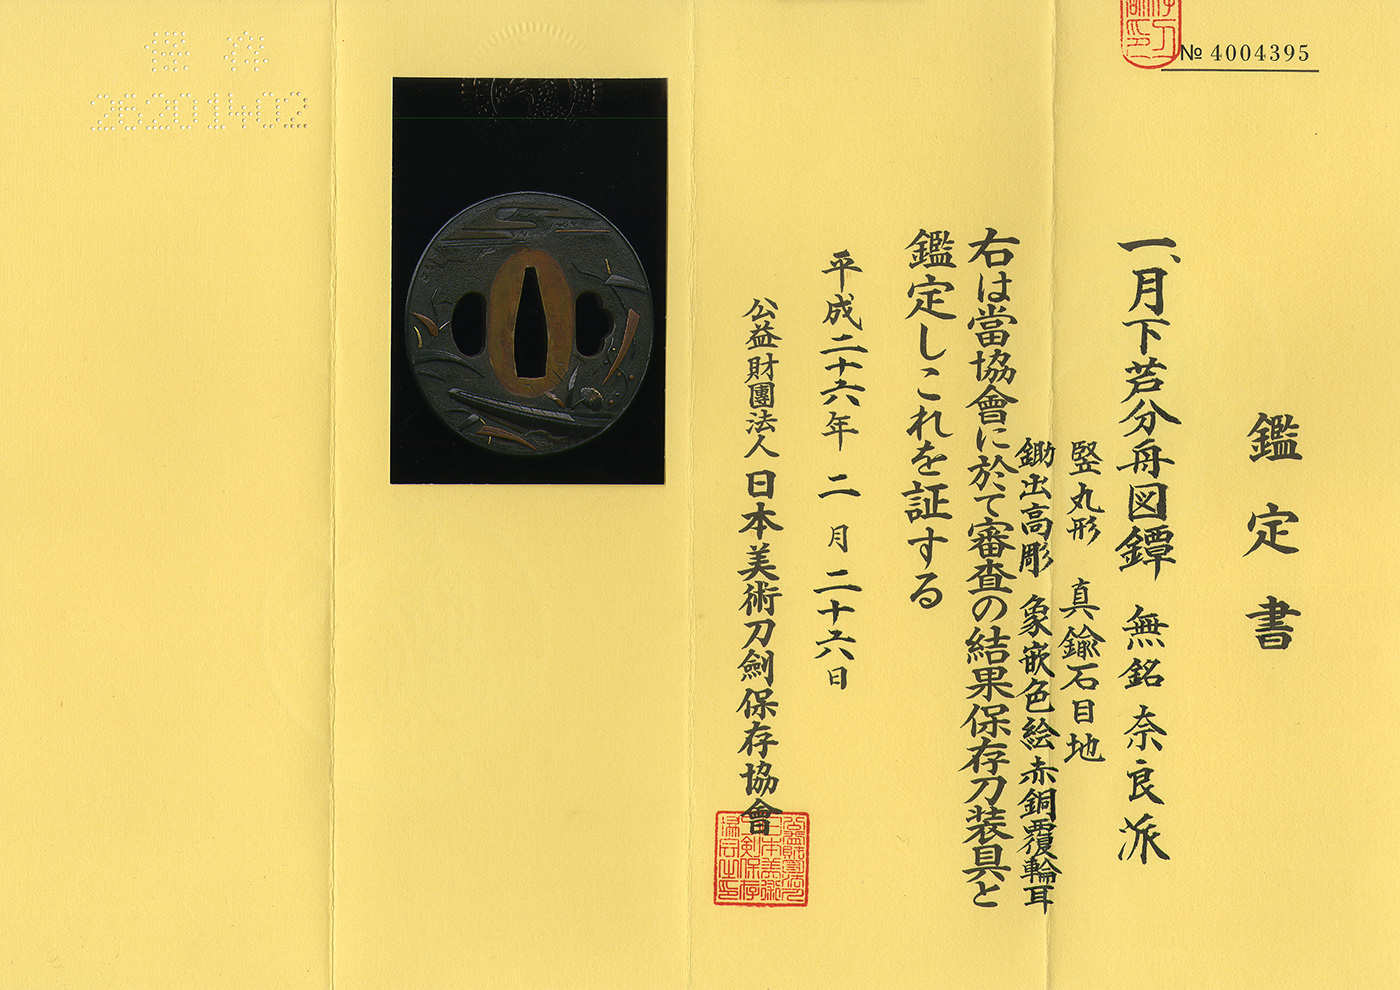 № 4004395
鑑定書
一、月下芦分舟図鐔 無銘 奈良派
竪丸形 真鍮石目地
鋤出高彫 象嵌色絵 赤銅覆輪耳
右は當協會に於て審査の結果保存刀装具と
鑑定しこれを証する
平成二十六年 二月 二十六日
公益財團法人 日本美術刀劍保存協會
保存
26201402